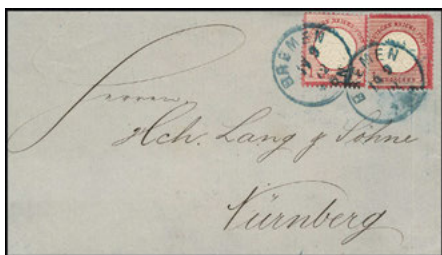 BREMEN
BREMEN
Herren
Hch. Lang & Söhne
Nürnberg